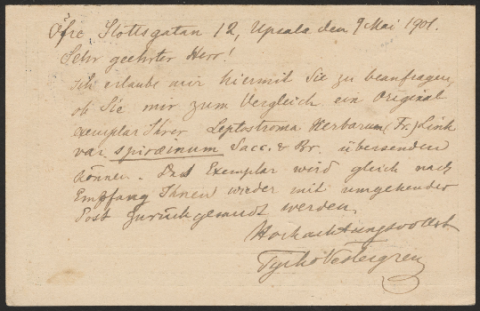 Öfre Slottsgatan 12, Upsala den 9 Mai 1901.
Sehr geehrter Herr!
Ich erlaube mir hiermit Sie zu beanfragen,
ob Sie mir zum Vergleich ein Original
exemplar Ihrer Leptostroma herbarum (Fr.) Link
var. spiraeinum Sacc. & Br. übersenden
können. Das Exemplar wird gleich nach
Empfang Ihnen wieder mit umgehender
Post zurückgesandt werden.
Hochachtungsvollst
Tycho Vestergren